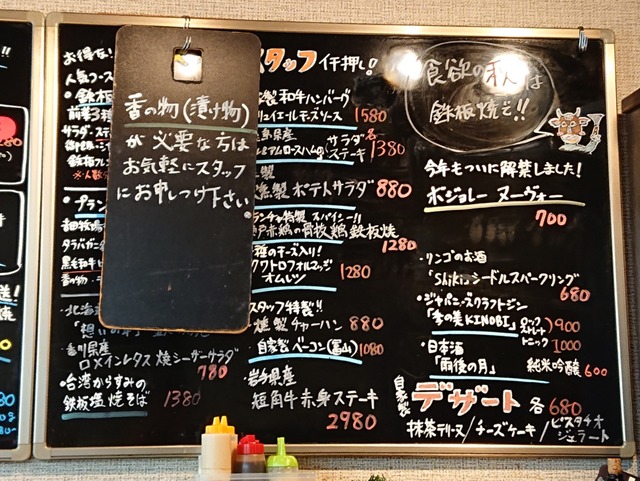 お得な!
人気コース
・鉄板
前菜3種
サラダ・ステ
鉄板
・プラン
タラバガニ
黒毛和牛
香の物
・北海道
香の物(漬け物)
が必要な方は
お気軽にスタッフ
にお申しつけ下さい。
・香川県産
ロメインレタス焼シーザーサラダ
780
・台湾からすみの
鉄板塩焼そば 1380
スタッフイチ押し!
製和牛ハンバーグ
リュイエールチーズソース 1580
県産 サラダ 各
プレミアムロースハムの ステーキ 1380
製
燻製ポテトサラダ 880
ランチャ特製 スパイシー!!
戸赤鶏の骨抜鶏鉄板焼
1280
種のチーズ入り!
クワトロフォルマッジ
オムレツ 1280
スタッフ特製!!
燻製チャーハン 880
自家製ベーコン(富山) 1080
岩手県産
短角牛赤身ステーキ
2980
食欲の秋は
鉄板焼ぞ!!
今年もついに解禁しました!
ボジョレー ヌーヴォー
700
・リンゴのお酒
「Shiki」シードルスパークリング
680
・ジャパニーズクラフトジン
「季の美KINOBI」 ロック ストレート 900
トニック 1000
・日本酒
「雨後の月」 純米吟醸 600
自家製 デザート 各680
抹茶テリーヌ/チーズケーキ/ピスタチオ
ジェラート